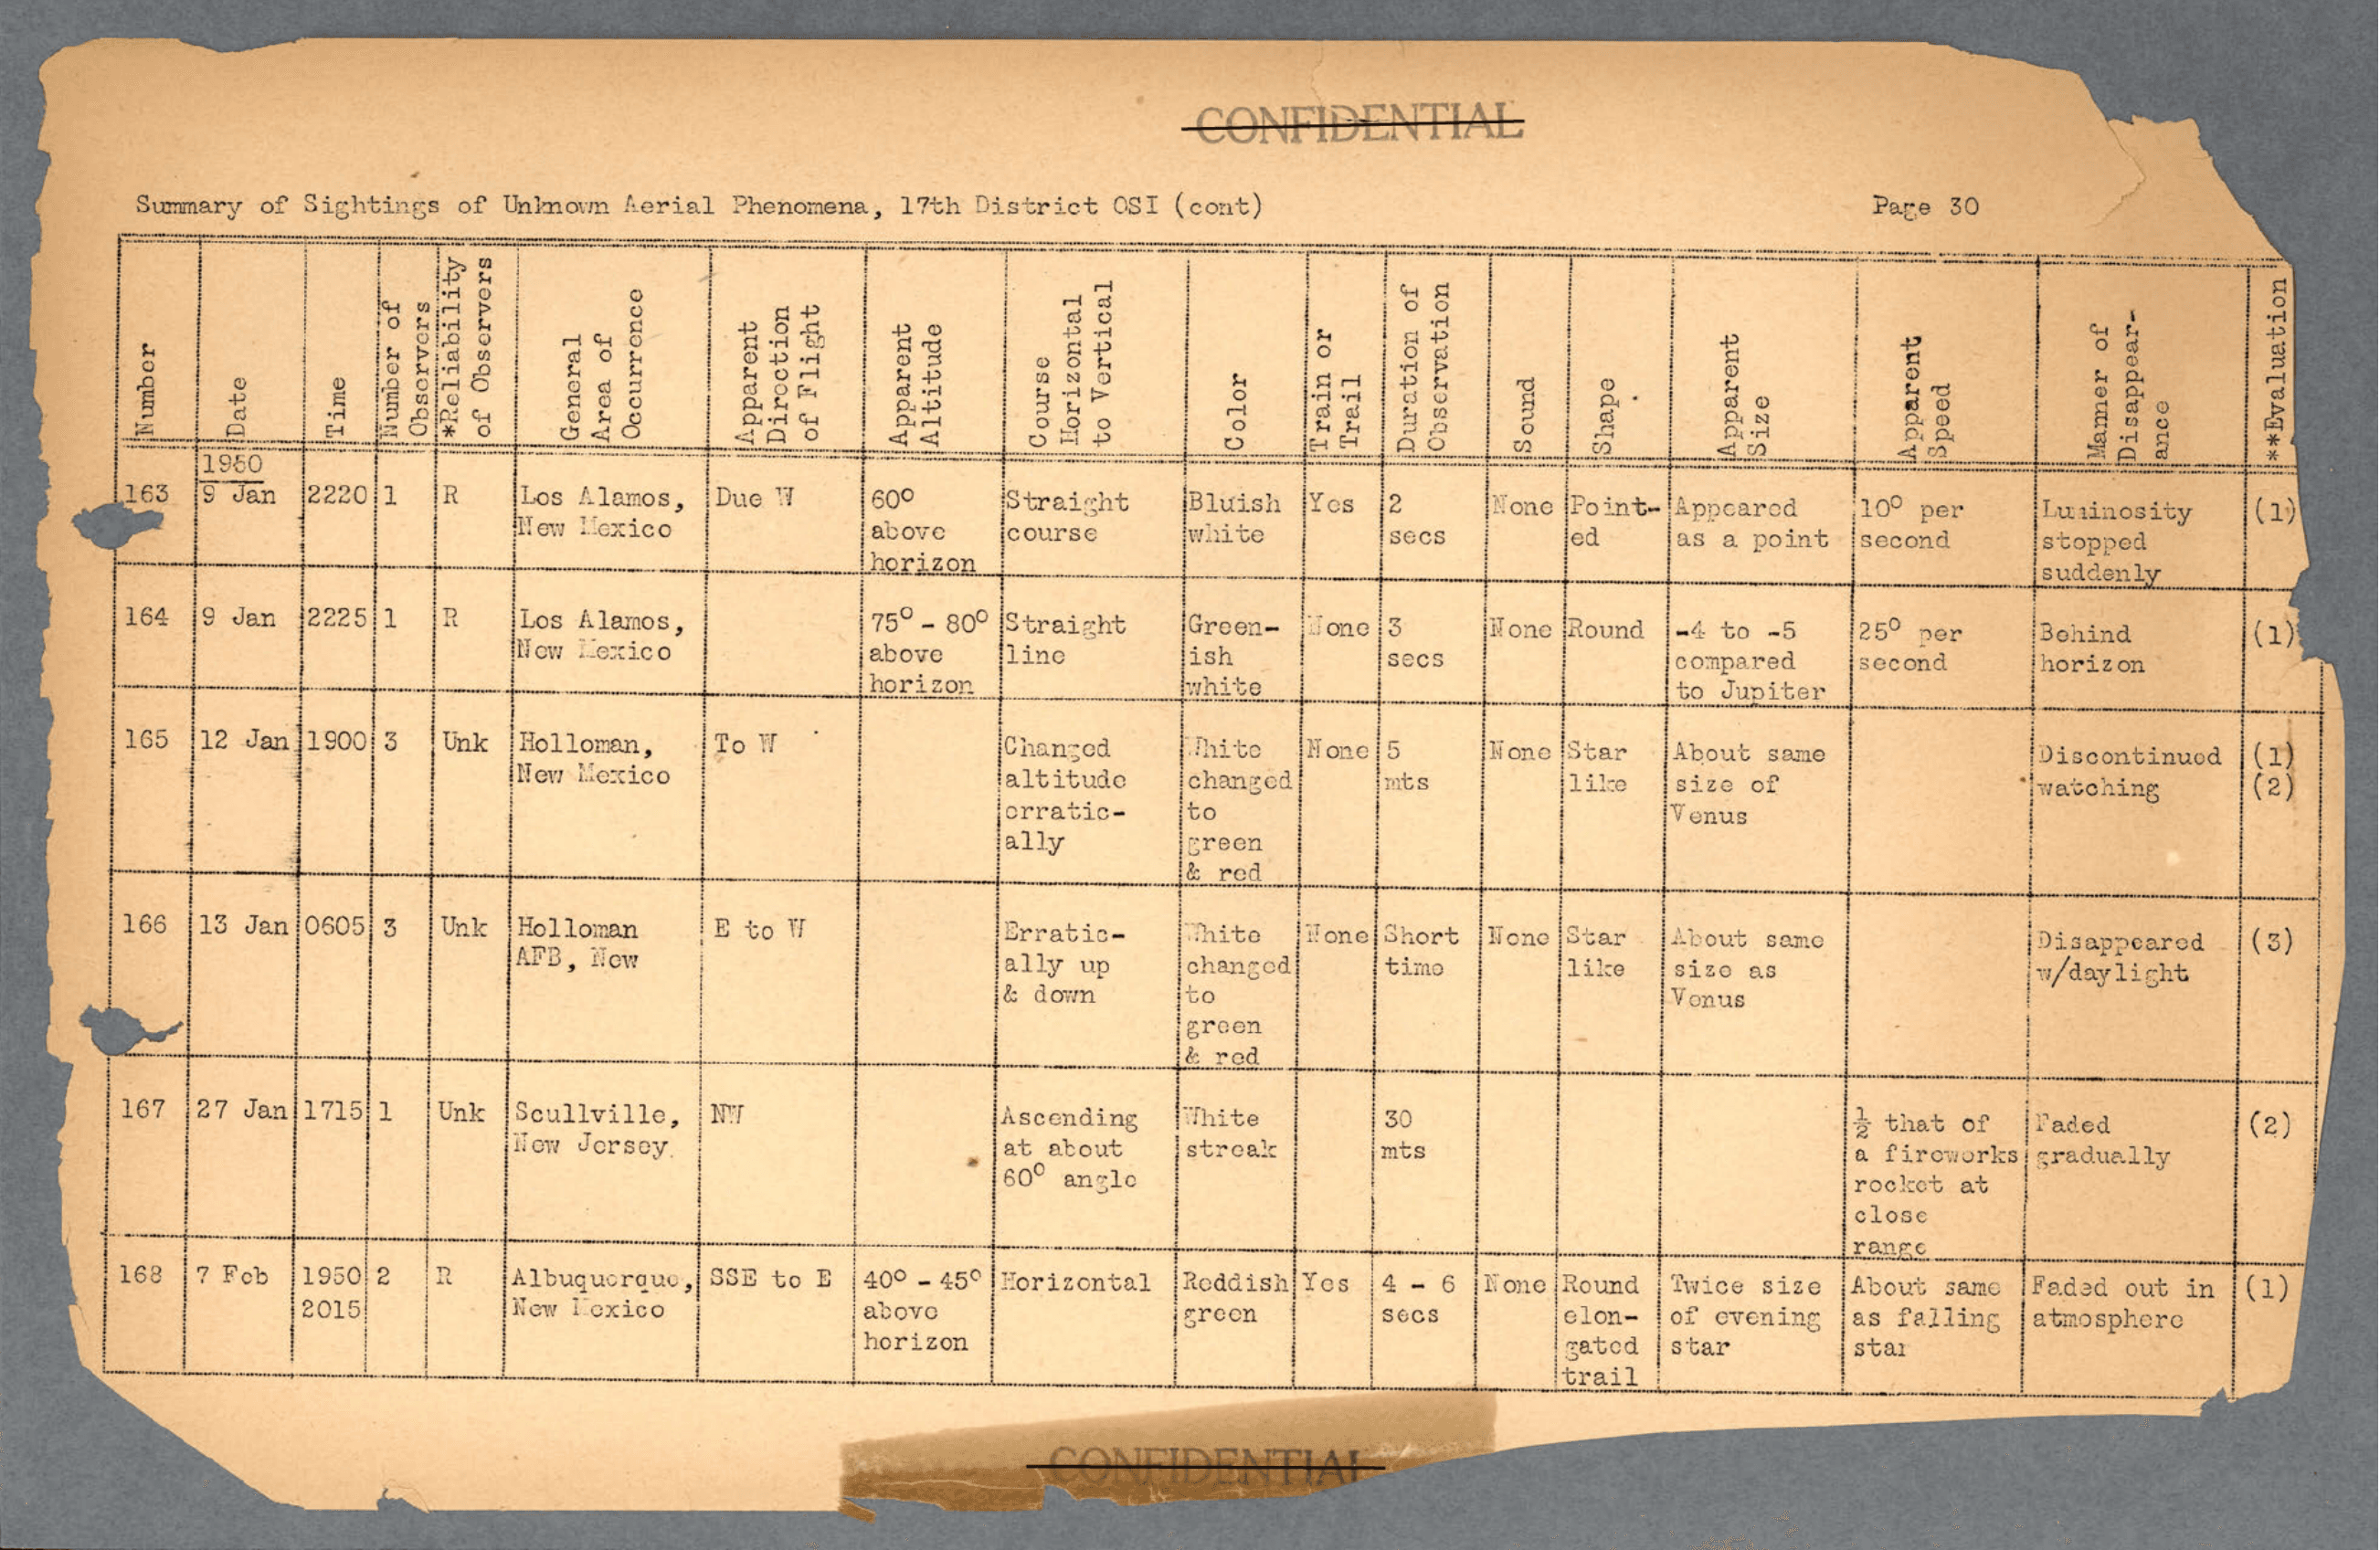 CONFIDENTIAL
Summary of Sightings of Unknown Aerial Phenomena, 17th District OSI (cont)
Page 30
Number
Date
Time
Number of
Observers
*Reliability
of Observers
General
Area of
Occurrence
Apparent
Diroction
of Flight
Apparent
Altitude
Course
Horizontal
to Vertical
Color
Train or
Trail
Duration of
Observation
Sound
Shape
Apparent
Size
Apparent
Speed
Manner of
Disappear-
ance
**Evaluation
1950
163 9 Jan 2220 1 R Los Alamos, Due W 60° Straight Bluish Yes 2 None Point- Appeared 10° per Luminosity (1)
New Mexico above course white secs ed as a point second stopped
horizon suddenly
164 9 Jan 2225 1 R Los Alamos, 75° - 80° Straight Green- None 3 None Round -4 to -5 25° per Behind (1)
New Mexico above line ish secs compared second horizon
horizon white to Jupiter
165 12 Jan 1900 3 Unk Holloman, To W Changed White None 5 None Star About same Discontinued (1)
New Mexico altitude changed mts like size of watching (2)
erratic- to Venus
ally green
& red
166 13 Jan 0605 3 Unk Holloman E to W Erratic- White None Short None Star About same Disappeared (3)
AFB, New ally up changed time like size as w/daylight
& down to Venus
green
& red
167 27 Jan 1715 1 Unk Scullville, NW Ascending White 30 ½ that of Faded (2)
New Jersey. at about streak mts a fireworks gradually
60° angle rocket at
close
range
168 7 Feb 1950 2 R Albuquerque, SSE to E 40° - 45° Horizontal Reddish Yes 4 - 6 None Round Twice size About same Faded out in (1)
2015 New Mexico above green secs elon- of evening as falling atmosphere
horizon gated star star
trail
CONFIDENTIAL